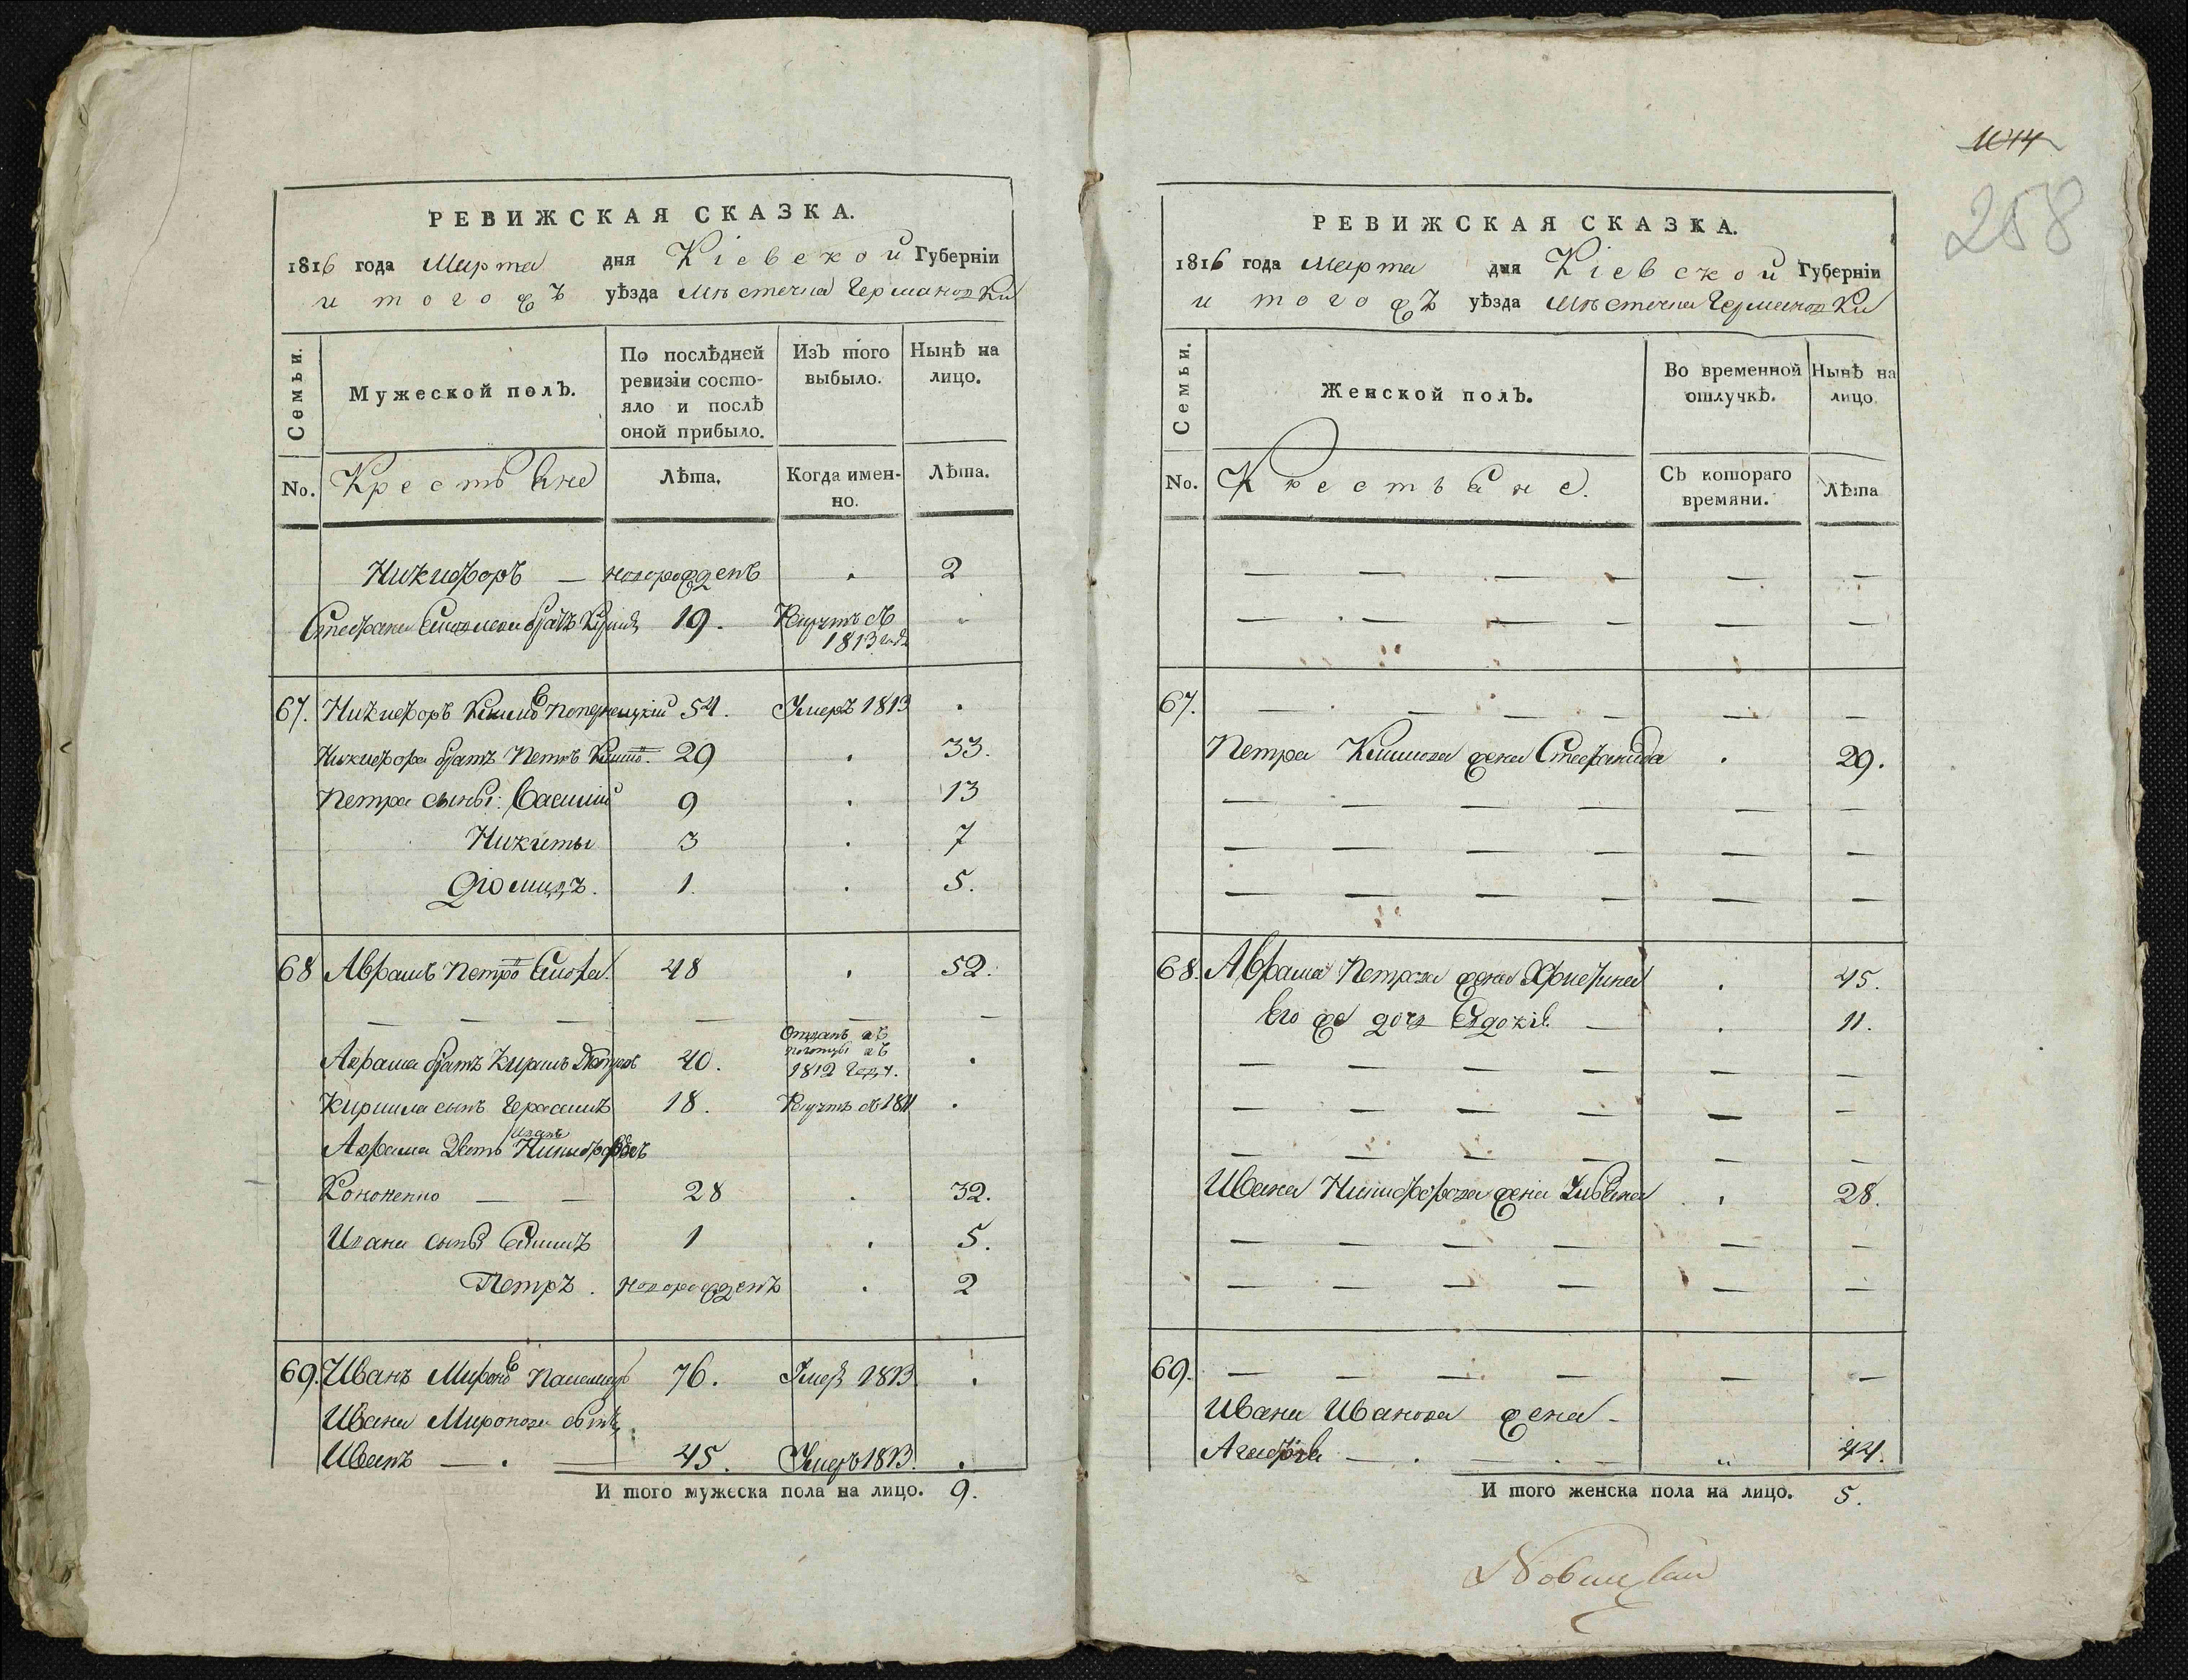 РЕВИЖСКАЯ СКАЗКА.
1816 года Марта дня Кіевской Губерніи
и тогожъ уѣзда Мѣстечка Германовки
Семьи.
Мужеской полъ.
По послѣдней ревизіи состо-
яло и послѣ оной прибыло.
Изъ того выбыло.
Нынѣ на лицо.
No.
Крестьяне
Лѣта.
Когда имен-
но.
Лѣта.
Никифоръ — новорожденъ . 2
Стефана братъ 19. 1813 года
67. Никифоръ 54. Умеръ 1813 .
Никифора братъ Петръ 29 . 33.
Петра сыны: Василий 9 . 13
Никиты 3 . 7
Діомидъ. 1. . 5.
68 Авраамъ Петро 48 . 52.
— — — — — — —
Отданъ въ
Аврама братъ Кирилъ Петровъ 40. въ 1812 .
Кирила сынъ Герасимъ 18. 1811 .
Иванъ
Аврама Зять Никифоровъ
Кононенко — — 28 . 32.
Ивана сынья 1 . 5.
Петръ. новорожденъ . 2
69. Иванъ Миронов 76. Умеръ 1813. .
Ивана Миронова сынъ
Иванъ — . — 45. Умеръ 1813. .
И того мужеска пола на лицо. 9.
1014
258
РЕВИЖСКАЯ СКАЗКА.
1816 года Марта дня Кіевской Губерніи
и тогожъ уѣзда Мѣстечка Германовки
Семьи.
Женской полъ.
Во временной отлучкѣ.
Нынѣ на лицо.
No.
Крестьяне.
Съ котораго времяни.
Лѣта
— — — — — —
— — — — — —
67. — — — — — —
Петра Климова жена Стефанида . 29.
— — — — — —
— — — — — —
— — — — — —
68. Аврама Петрова жена . 45.
Его же дочь Евдокія — . 11.
— — — — — —
— — — — — —
— — — — — —
Ивана Никифорова жена Уліана . 28.
— — — — — —
— — — — — —
69. — — — — — —
Ивана Иванова жена —
Агафія — . — . — „ 44.
И того женска пола на лицо. 5.